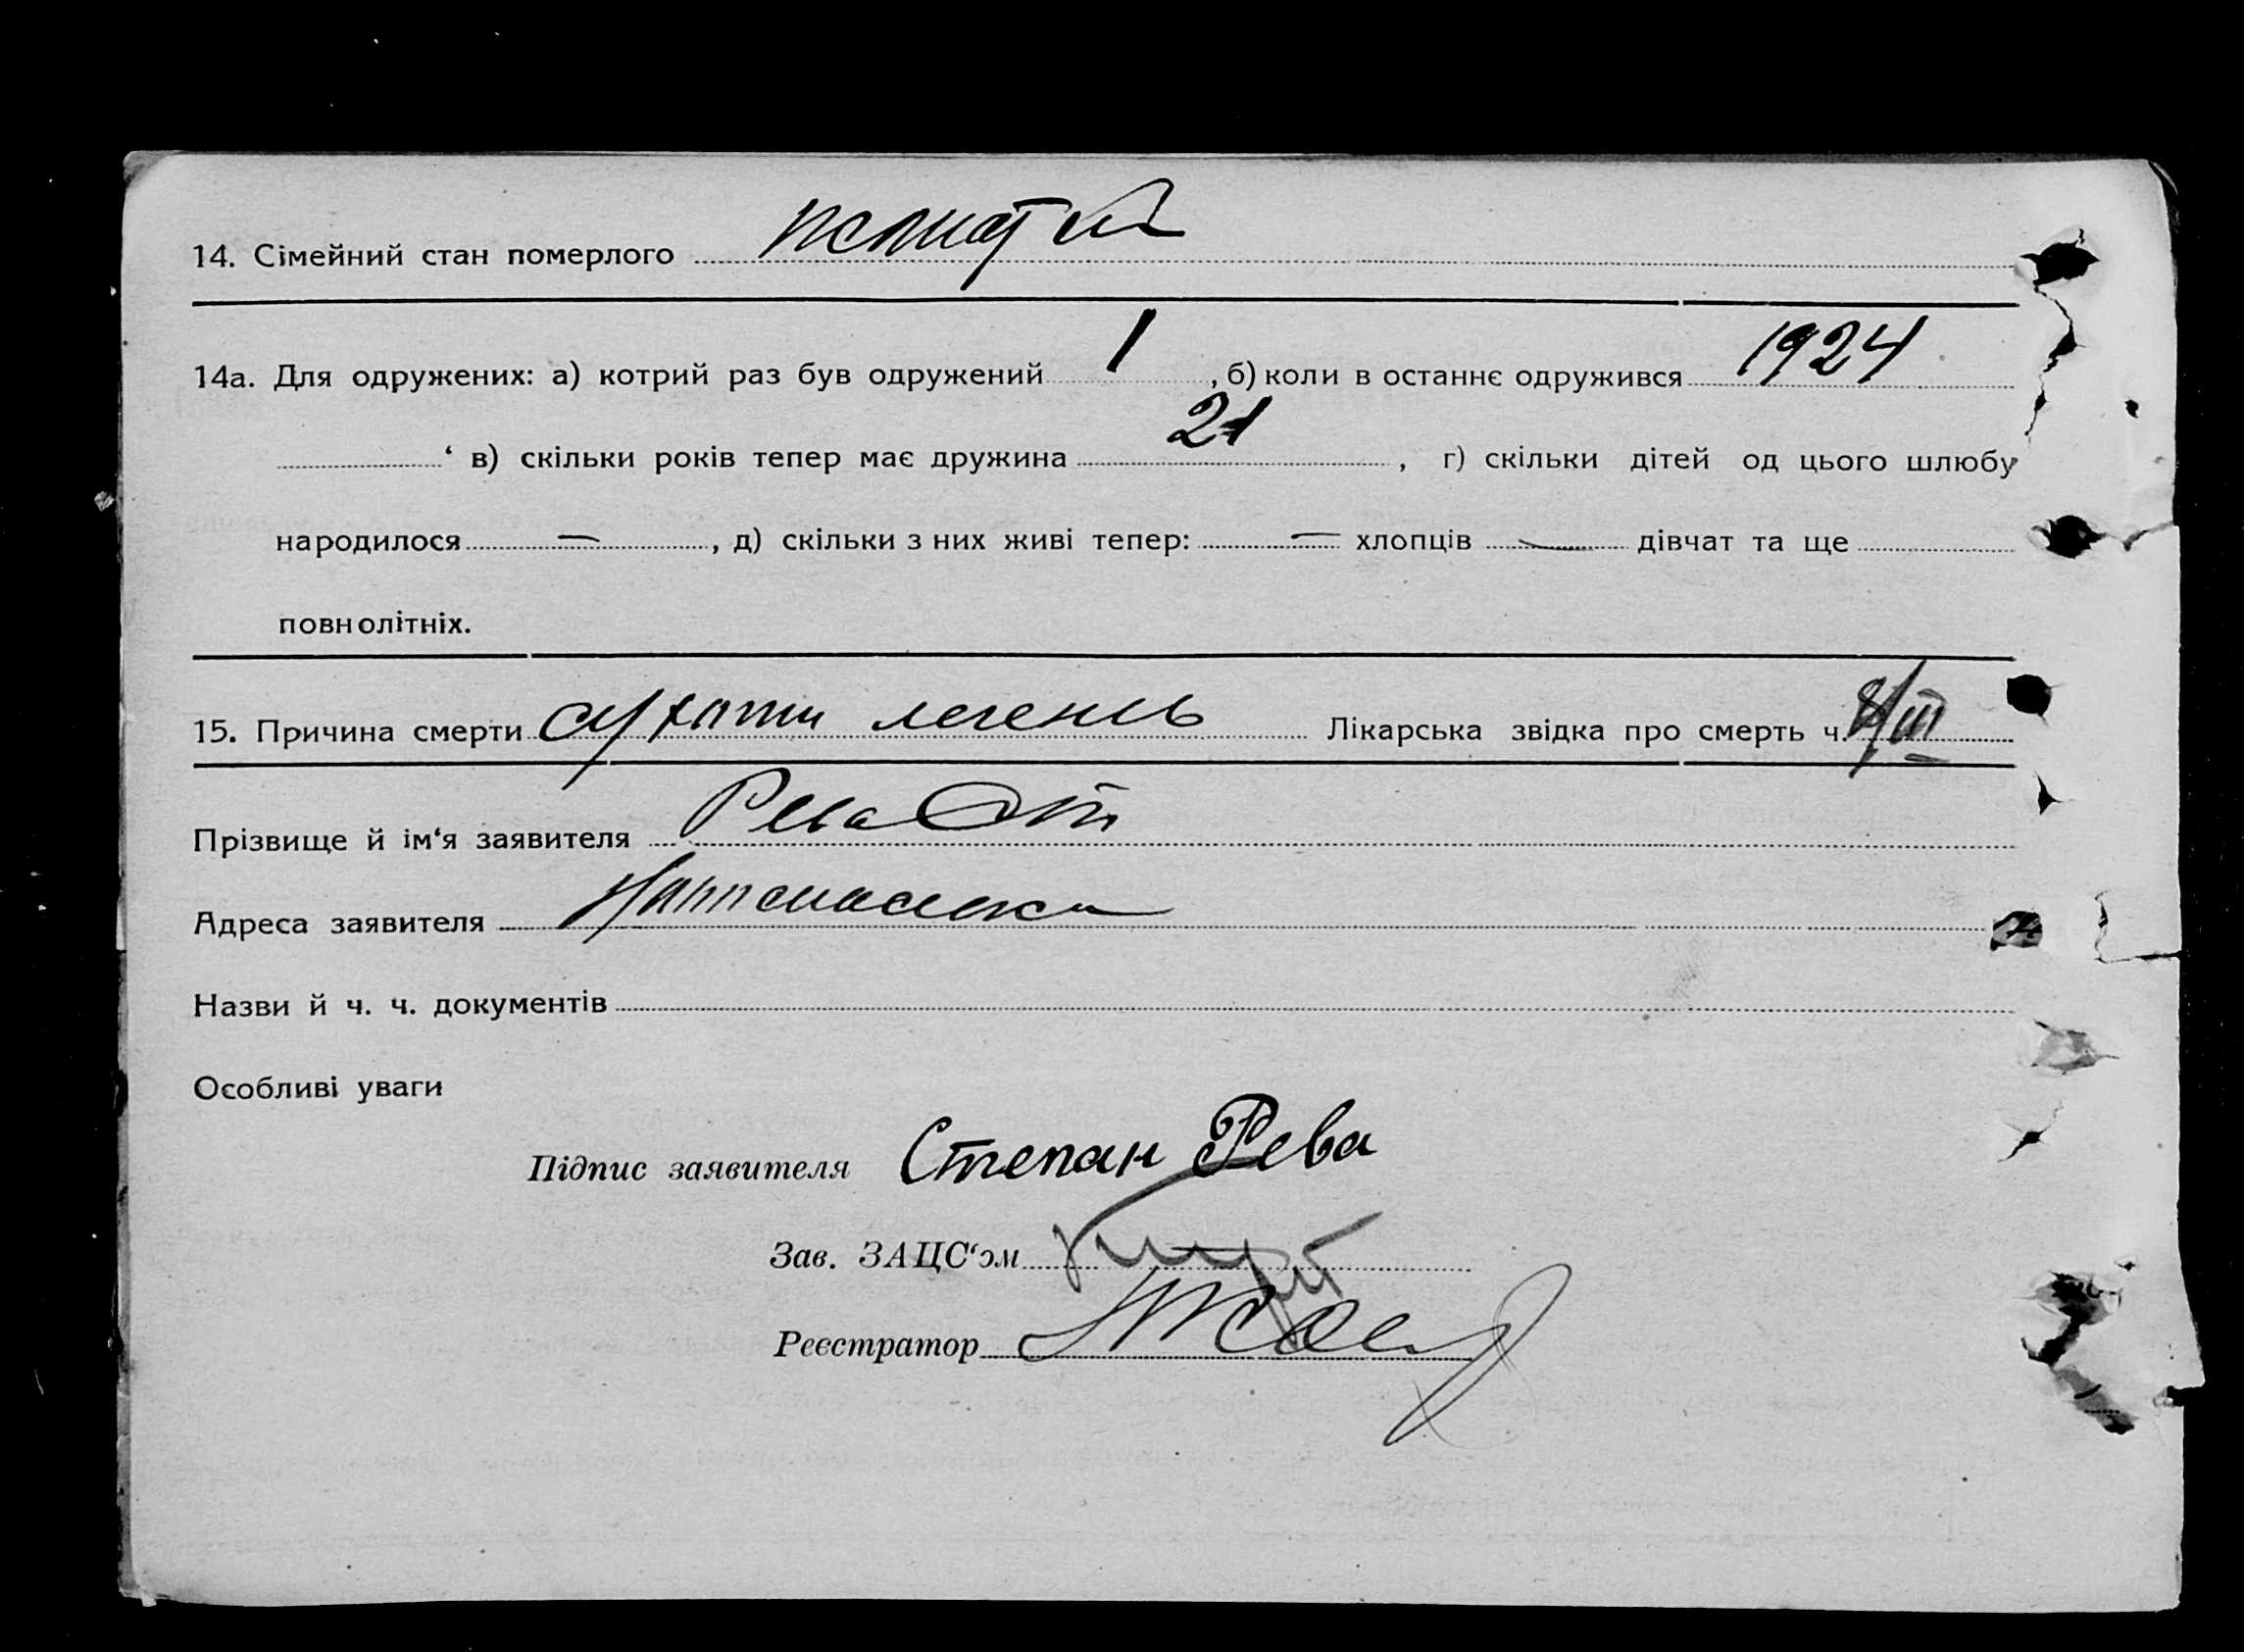 14. Сімейний стан померлого жонатий
14а. Для одружених: а) котрий раз був одружений 1, б) коли в останнє одружився 1924
‘ в) скільки років тепер має дружина 21, г) скільки дітей од цього шлюбу
народилося —, д) скільки з них живі тепер: — хлопців — дівчат та ще
повнолітніх.
15. Причина смерти сухоти легень Лікарська звідка про смерть ч. 8/III
Прізвище й ім‘я заявителя Рева Ст
Адреса заявителя
Назви й ч. ч. документів
Особливі уваги
Підпис заявителя Степан Рева
Зав. ЗАЦС‘ом
Реєстратор